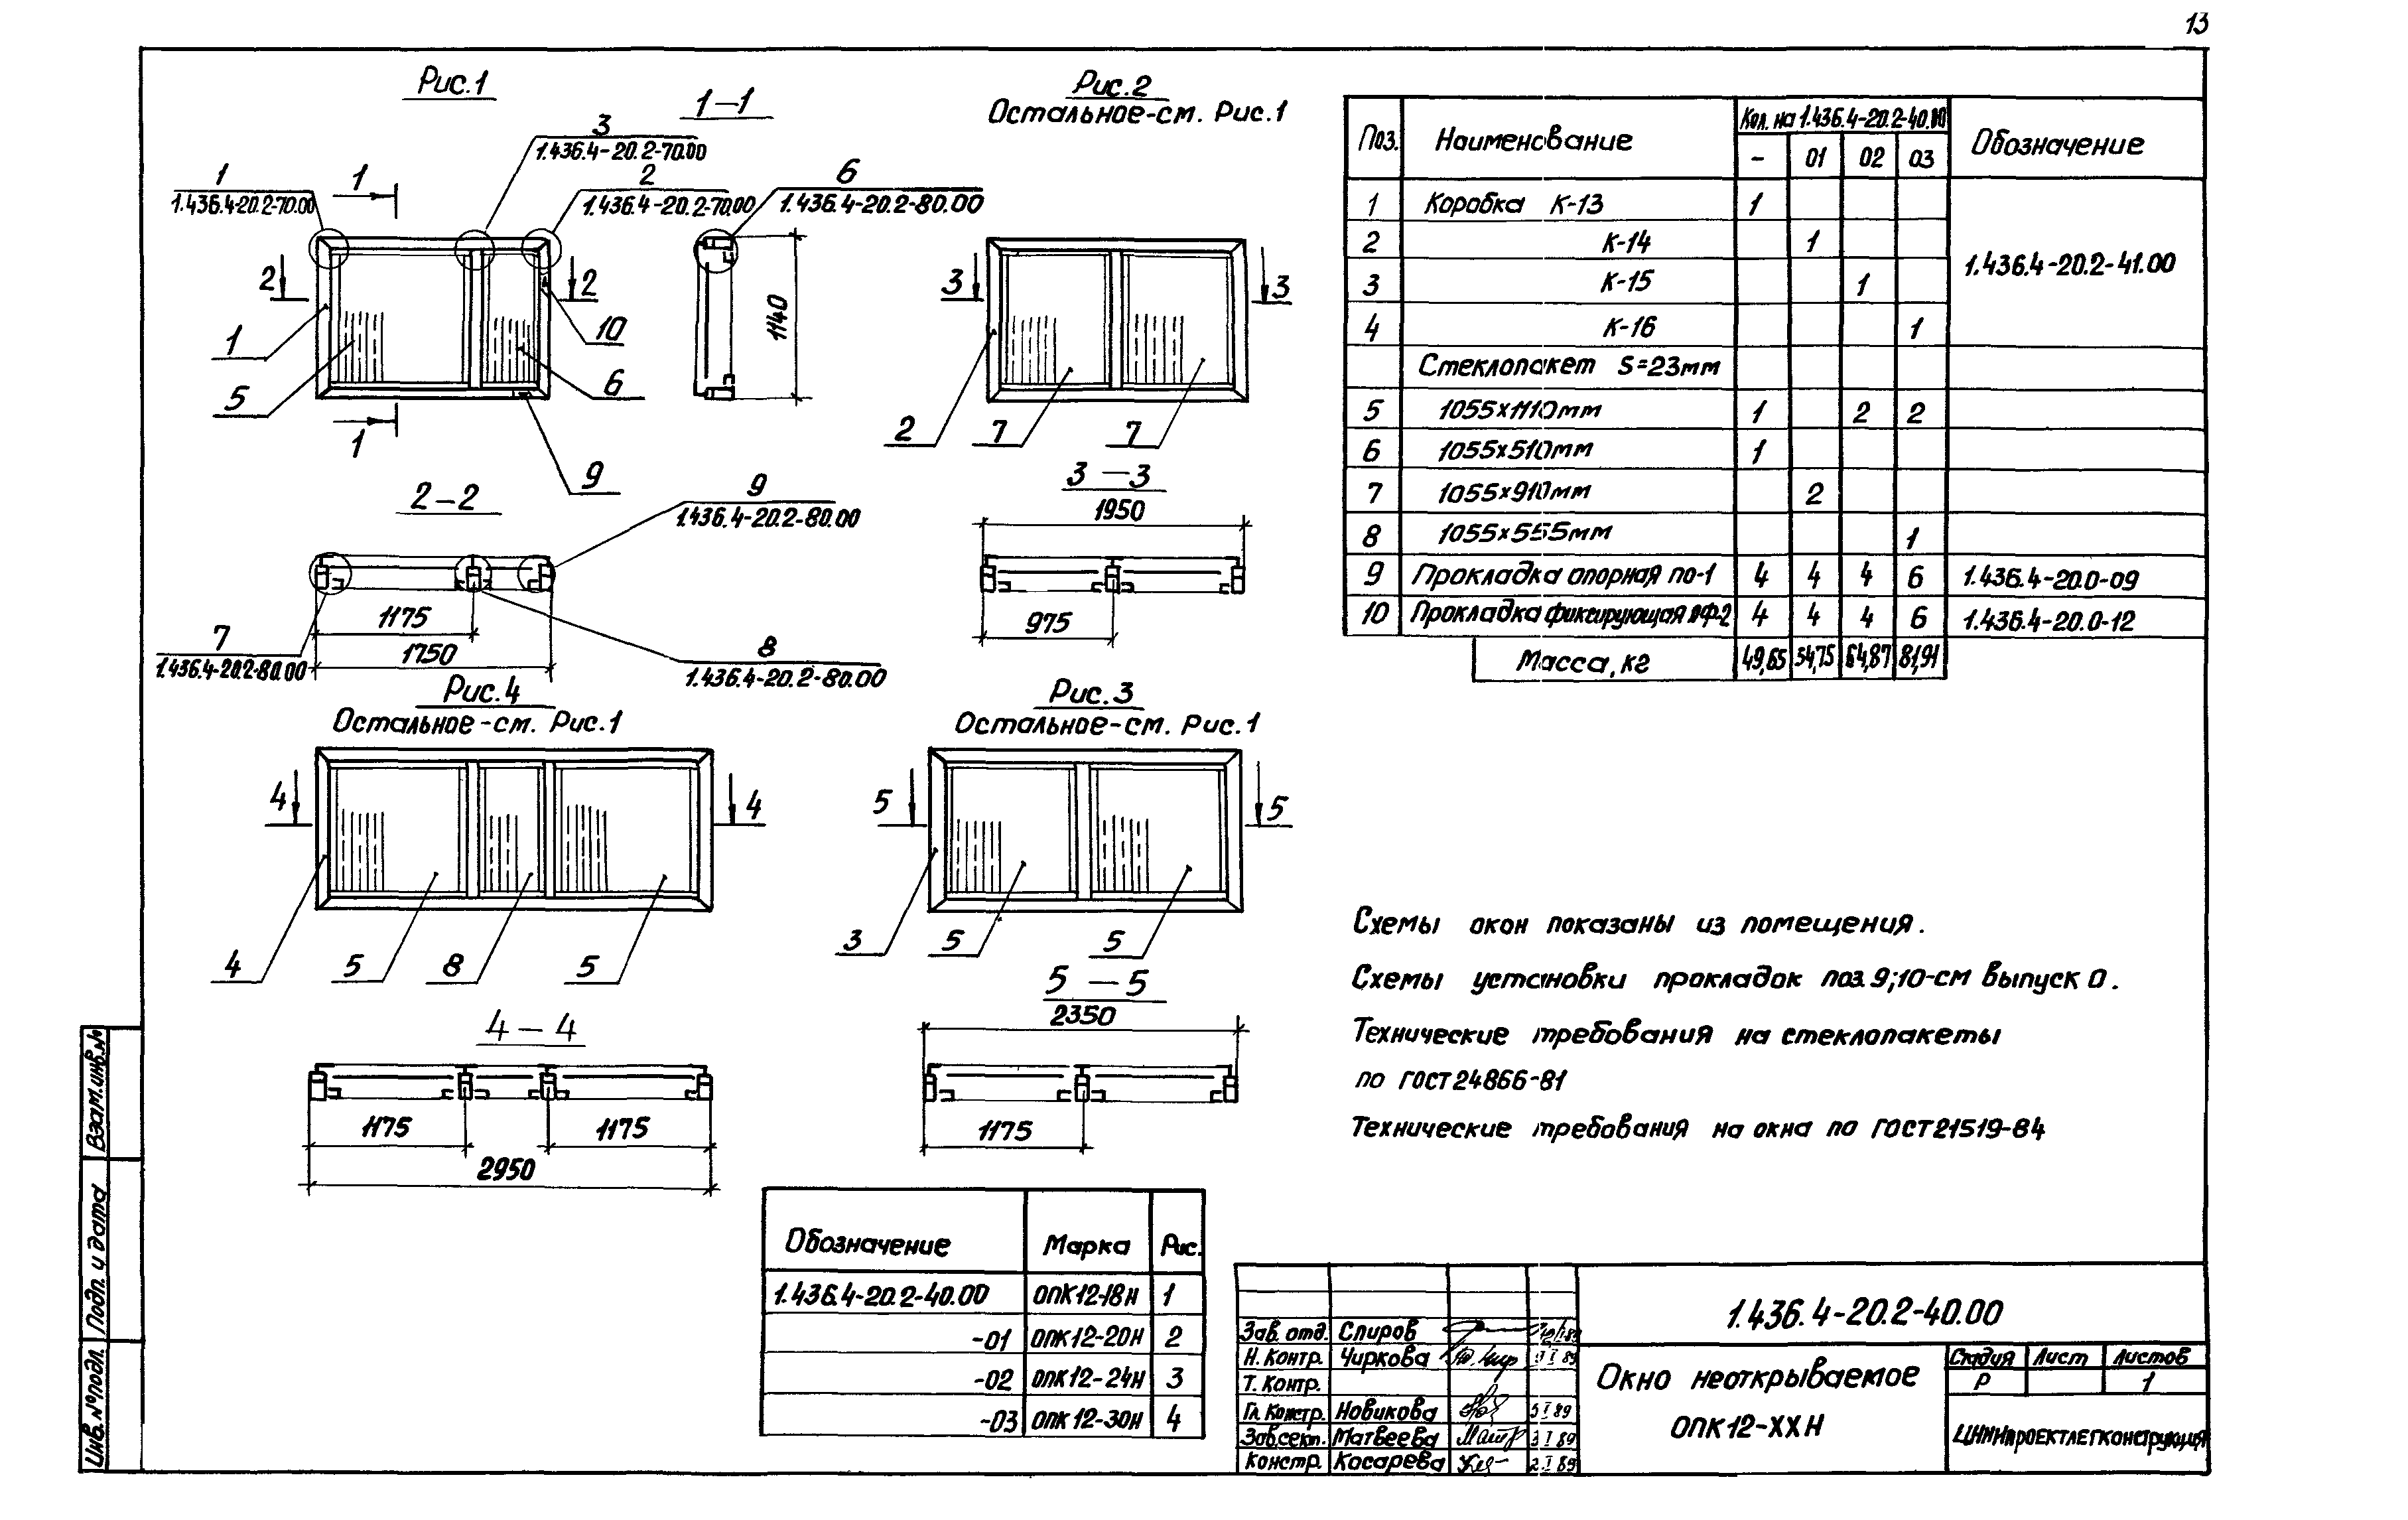 13
Рис.1
1-1
3
1.436.4-20.2-70.00
1
1.436.4-20.2-70.00
1
2
1.436.4-20.2-70.00
6
1.436.4-20.2-80.00
2
2
1
5
10
6
1
9
1140
Рис.2
Остальное-см. Рис.1
3
3
2
7
7
2-2
9
1.436.4-20.2-80.00
1175
1750
7
1.436.4-20.2-80.00
8
1.436.4-20.2-80.00
3-3
1950
975
Рис.4
Остальное-см. Рис.1
4
4
4
5
8
5
4-4
1175
1175
2950
Рис.3
Остальное-см. Рис.1
5
5
3
5
5
5-5
2350
1175
Поз. Наименование Кол. на 1.436.4-20.2-40.00 Обозначение
- 01 02 03
1 Коробка К-13 1
2 К-14 1
1.436.4-20.2-41.00
3 К-15 1
4 К-16 1
Стеклопакет S=23мм
5 1055х1110мм 1 2 2
6 1055х510мм 1
7 1055х910мм 2
8 1055х555мм 1
9 Прокладка опорная ПО-1 4 4 4 6 1.436.4-20.0-09
10 Прокладка фиксирующая ПФ-2 4 4 4 6 1.436.4-20.0-12
Масса, кг 49,65 54,75 64,87 81,91
Схемы окон показаны из помещения.
Схемы установки прокладок поз. 9;10-см выпуск 0.
Технические требования на стеклопакеты
по ГОСТ 24866-81
Технические требования на окна по ГОСТ 21519-84
Обозначение Марка Рис.
1.436.4-20.2-40.00 ОПК12-18Н 1
-01 ОПК12-20Н 2
-02 ОПК12-24Н 3
-03 ОПК12-30Н 4
1.436.4-20.2-40.00
Зав. отд. Спиров
Н. Контр. Чиркова
Т. Контр.
Гл. Констр. Новикова 5 I 89
Зав.сект. Матвеева 3 I 89
Констр. Косарева 2.I 89
Окно неоткрываемое
ОПК12-ХХН
Стадия Лист Листов
Р 1
ЦНИИпроектлегконструкция
Взам.инв.№
Подп. и дата
Инв.№подл.